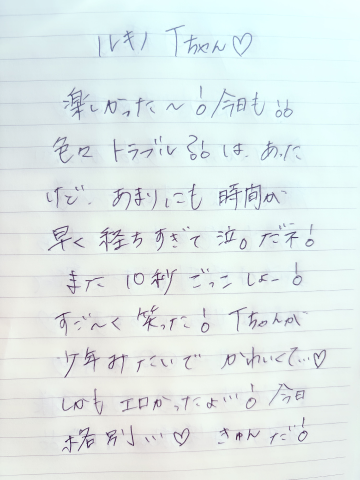 ルキノ Tちゃん♡
楽しかった〜!今日も!!
色々トラブル?!!は、あった
けど、あまりにも時間が
早く経ちすぎて泣。だネ!
また10秒ごっこしよー!
すご〜く笑った!Tちゃんが
少年みたいでかわいくて…♡
しかもエロかったよ…!今日
格別…♡きゅんだ!